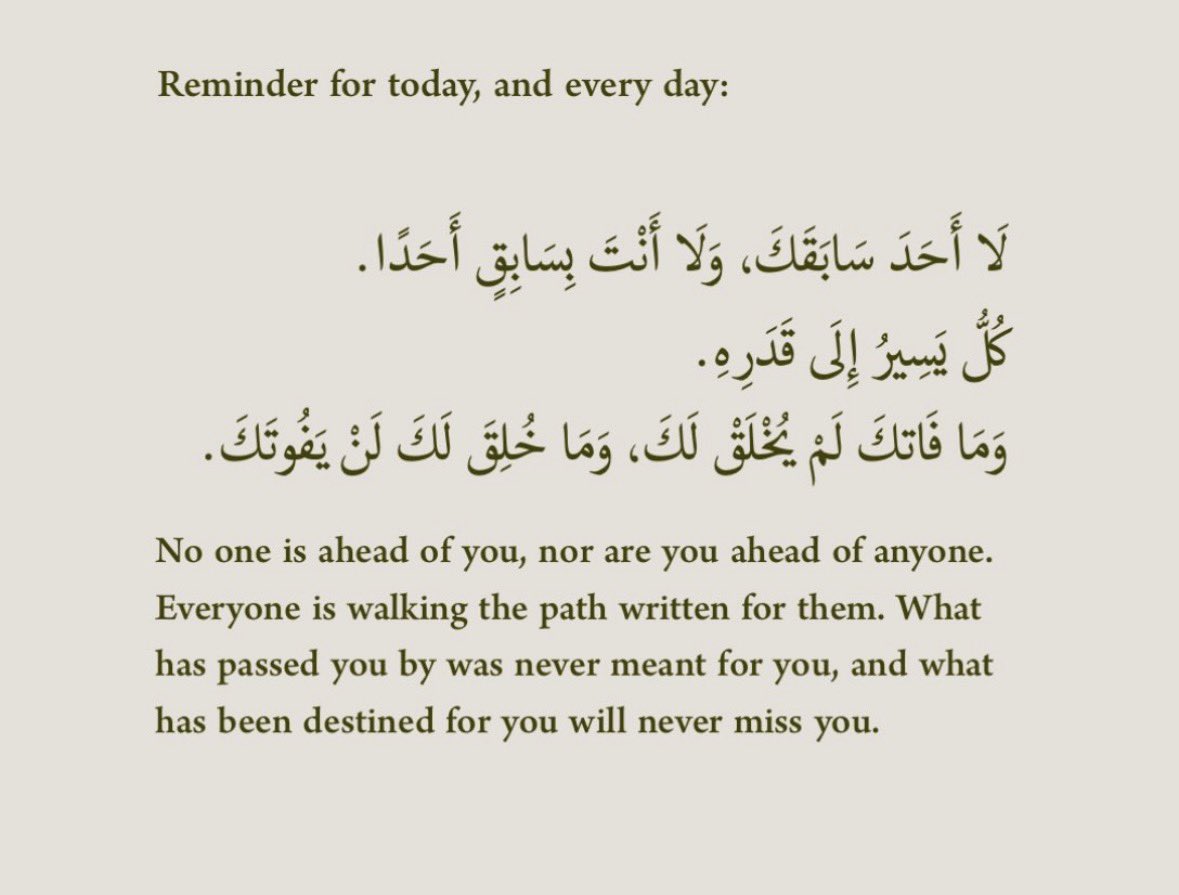 Reminder for today, and every day:
لَا أَحَدَ سَابَقَكَ، وَلَا أَنْتَ بِسَابِقٍ أَحَدًا.
كُلُّ يَسِيرُ إِلَى قَدَرِهِ.
وَمَا فَاتكَ لَمْ يُخْلَقْ لَكَ، وَمَا خُلِقَ لَكَ لَنْ يَفُوتَكَ.
No one is ahead of you, nor are you ahead of anyone.
Everyone is walking the path written for them. What
has passed you by was never meant for you, and what
has been destined for you will never miss you.